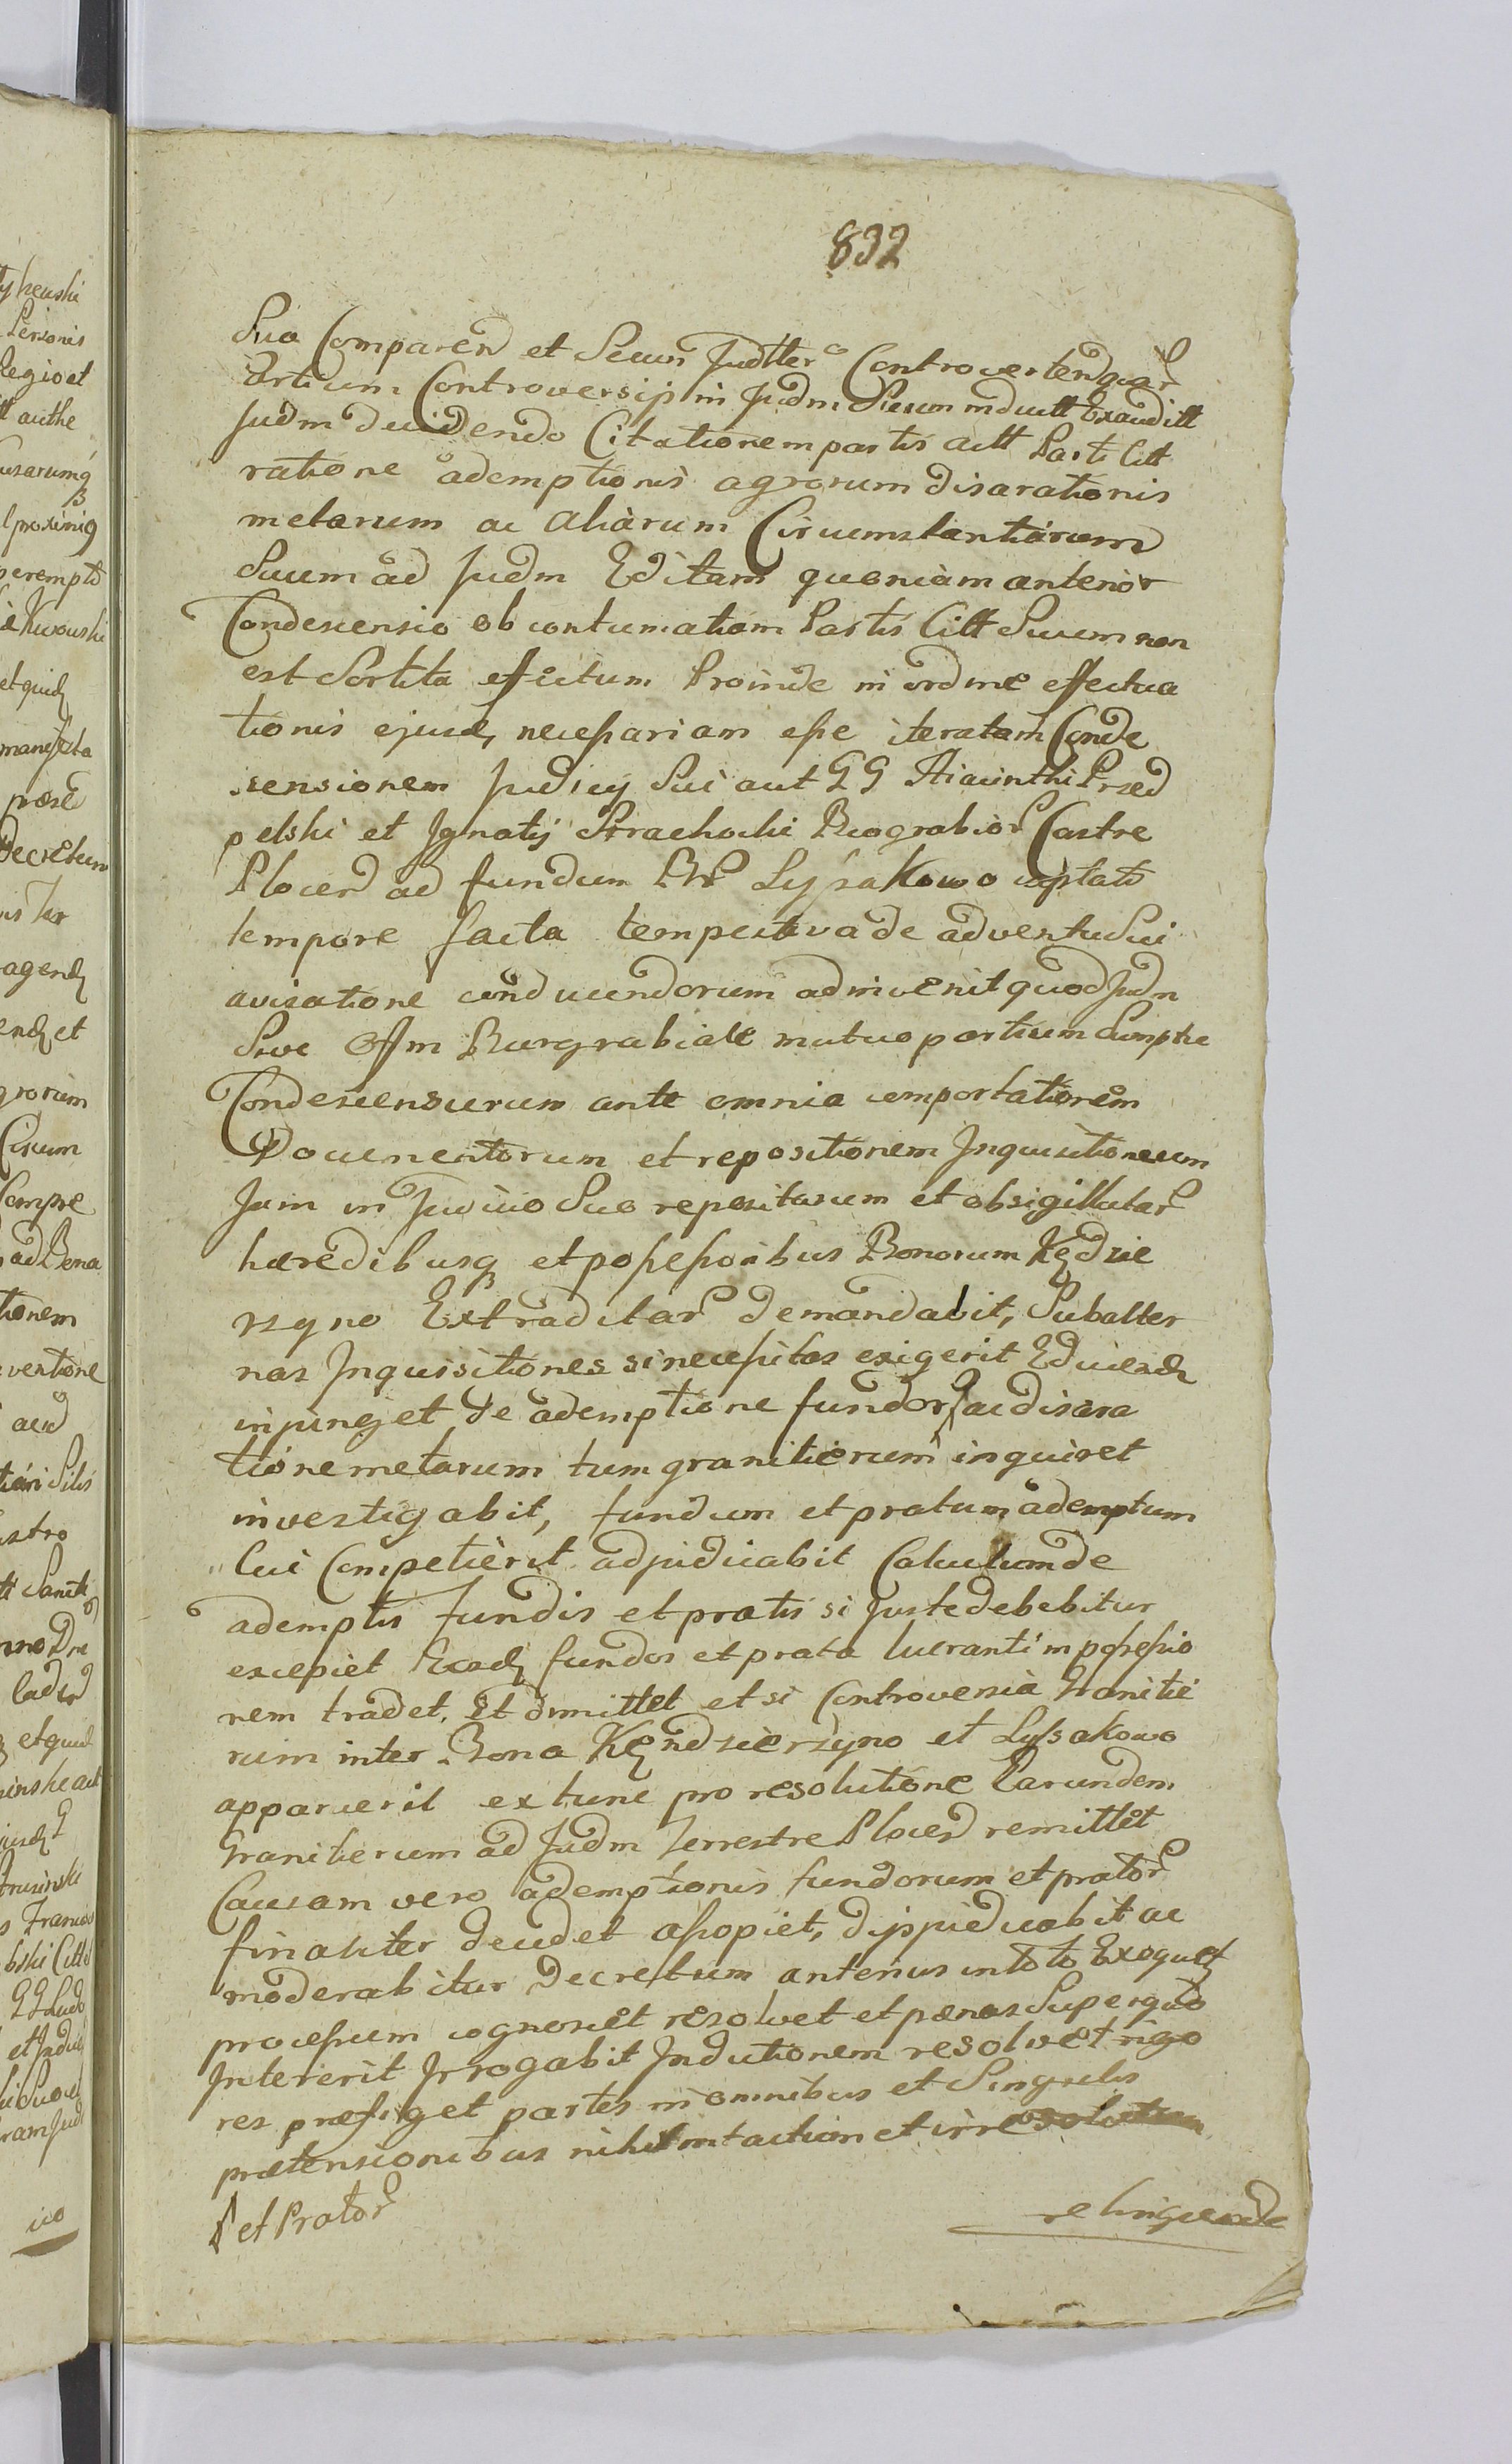 832
Suo Comparen et Secum Judtter Controvertenquar
Partium Controversijs in Judm Suum indultt Exauditt
Judm decidendo Citationem partis Actt Parti Citt
ratione ademptionis agrorum disarationis
metarum ac aliarum Circumstantiarum
Suum ad Judm Editam quoniam anterior
Condescensio ob contumatiam Partis Citt Suum non
est Sortita effectum Proinde in ordine effectua
tionis ejusd, necessariam esse iteratam Conde
scensionem Judicij Sui aut GG Hiacinthi Przed
pelski et Ignatij Strachocki Burgrabior Castre
Plocen ad fundum Bnr Lyssakowo captato
tempore facta tempestiva de adventu Sui
avisatione conducendorum adinvenit quod Judm
Sive Offm Burgrabiale mutuo partium Sumptu
Condescensurum ante omnia comportationem
Documentorum et repositionem Inquisitionum
Jam in Judicio Suo repositarum et obsigillatar
hæredibusq et possessoribus Bonorum Kędzie
rzyno Extraditar demandabit, Subalter
nas Inquisitiones si necessitas exigerit Educend
injunget de ademptione fundor ac disara
tione metarum tum granitierum inquiret
investigabit, fundum et pratum ademptum
Cui Competierit adjudicabit Calculum de
ademptis fundis et pratis si Juste debebitur
excepiet Eosd fundos et prata lucranti in possessio
nem tradet, et dimittet et si Controversia Granitie
rum inter Bona Kędzierzyno et Lyssakowo
apparuerit extunc pro resolutione Earundem
Granitierum ad Judm Terrestre Plocen remittet
Causam vero ademptionis fundorum et prator
finaliter decidet assopiet, dijpiducabit ac
moderabitur Decretum anterius in toto Exequet
processum cognoscet resolvet et pænas Super quo
Intererit Irrogabit Inductionem resolvet rigo
res præfiget partes in omnibus et Singulis
prætensionibus nihil intactum et irresolutum
et Prator
relinquendo